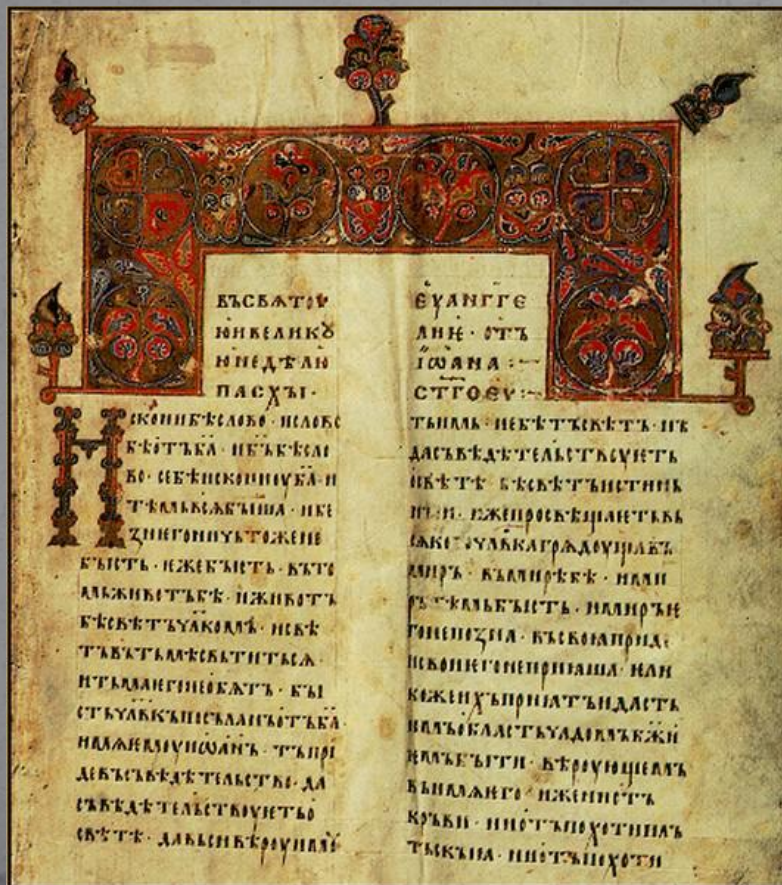 ВЪСВѦТОУ
ЮИВЕЛИКꙊ
ЮНЕДѢЛЮ
ПАСХЪІ·
ИСКОНИБѢСЛОВО · ИСЛОВО
БѢОТЪБА҃ · ИБ҃ЪБѢСЛО
ВО · СЕБѢИСКОНИОУБА҃ · И
ТѢМЬВСꙖБЪІША · ИБЕ
ЗНЕГОНИЧЬТОЖЕНЕ
БЪІСТЬ · ЕЖЕБЪІСТЬ · ВЪТО
МЬЖИВОТЪБѢ · ИЖИВОТЪ
БѢСВѢТЪЧЛ҃КОМЪ · ИСВѢ
ТЪВЪТЬМѢСВЬТИТЬСѦ ·
ИТЬМАѤГОНЕОБѦТЪ · БЪІ
СТЬЧЛ҃ВКЪПОСЪЛАНЪОТЪБА҃
ИМѦЕМОУИѠАНЪ · ТЪПРИ
ДЕВЪСЪВѢДѢТЕЛЬСТВО · ДА
СЪВѢДѢТЕЛЬСТВОУѤТЬО
СВѢТѢ · ДАВЬСИВѢРОУИМОУ
ЕѴАНГГЕ
ЛИѤ · ОТЪ
ІѠАНА :~
СТГ҃ОЕѴ
ТЬИМЬ · НЕБѢТЪСВѢТЪ · НЪ
ДАСЪВѢДѢТЕЛЬСТВОУѤТЬ
ОСВѢТѢ БѢСВѢТЪИСТИНЬ
НЪІИ · ИЖЕПРОСВѢЩАѤТЬВЬ
СꙖКОГОЧЛ҃ВКАГРѦДОУЩАВЪ
МИРЪ · ВЪМИРѢБѢ · ИМИ
РЪТѢМЬБЪІСТЬ · ИМИРЪѤ
ГОНЕПОЗНА · ВЪСВОꙖПРИДЕ
ИСВОИѤГОНЕПРИꙖША · ЕЛИ
КОЖЕИХЪПРИꙖТЪИДАСТЬ
ИМЪОБЛАСТЬЧАДОМЪБЖ҃И
ѤМЪБЪІТИ · ВѢРОУЮЩЕМЪ
ВЪИМѦѤГО · ИЖЕНИОТЪ
КРЪВИ · НИОТЪПОХОТИПЛЪ
ТЬСКЪІѦ · НИОТЪПОХОТИ